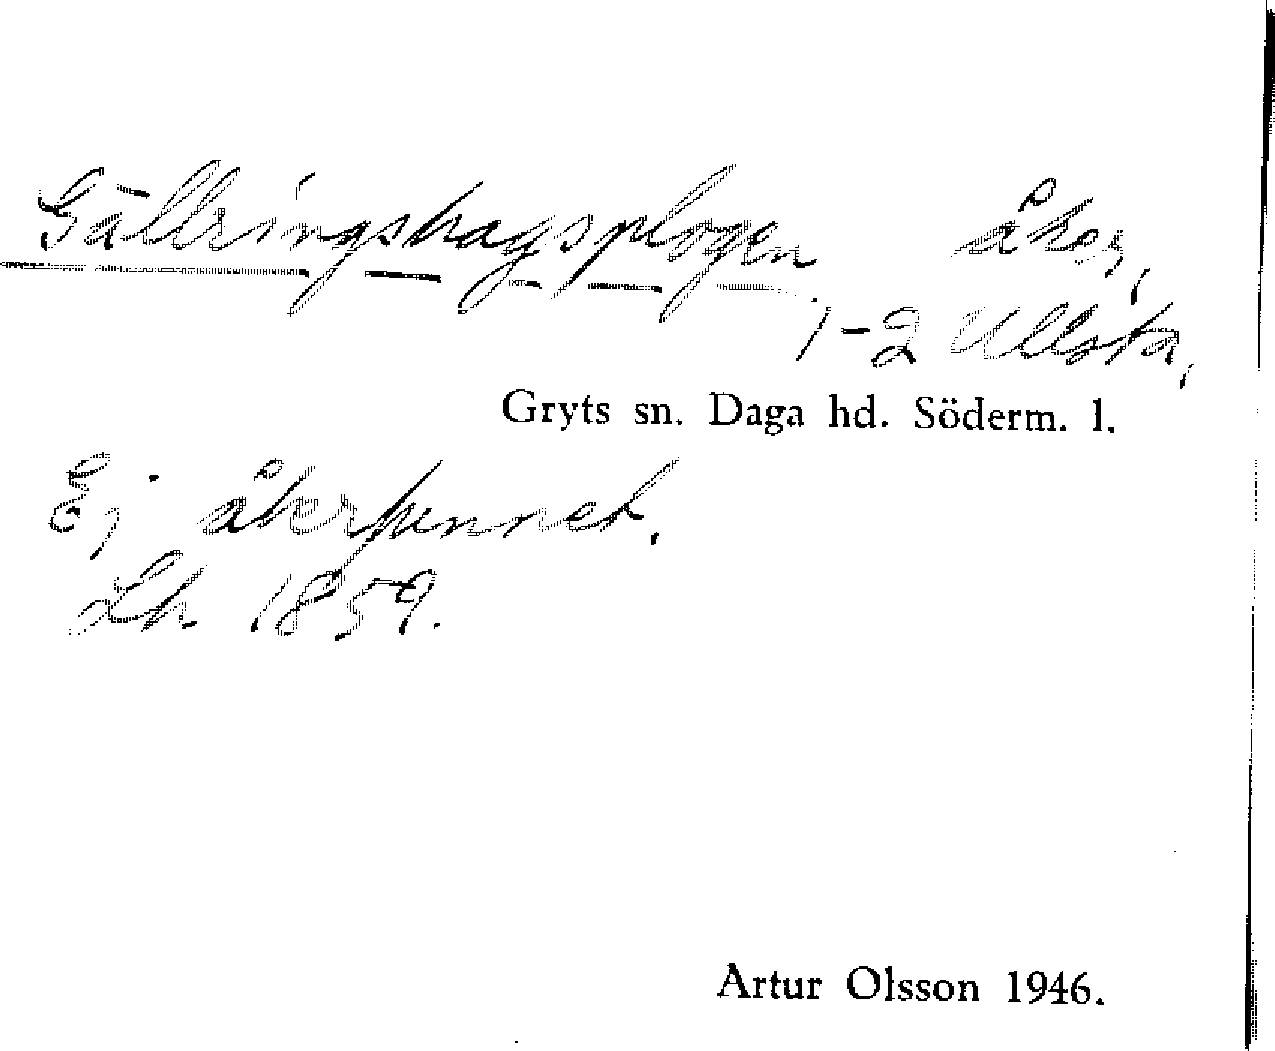 Gällringshagsplogen åker,
1-2 Ullsta,
Gryts sn. Daga hd. Söderm. l.
Ej återfunnet.
Lh 1859.
Artur Olsson 1946.